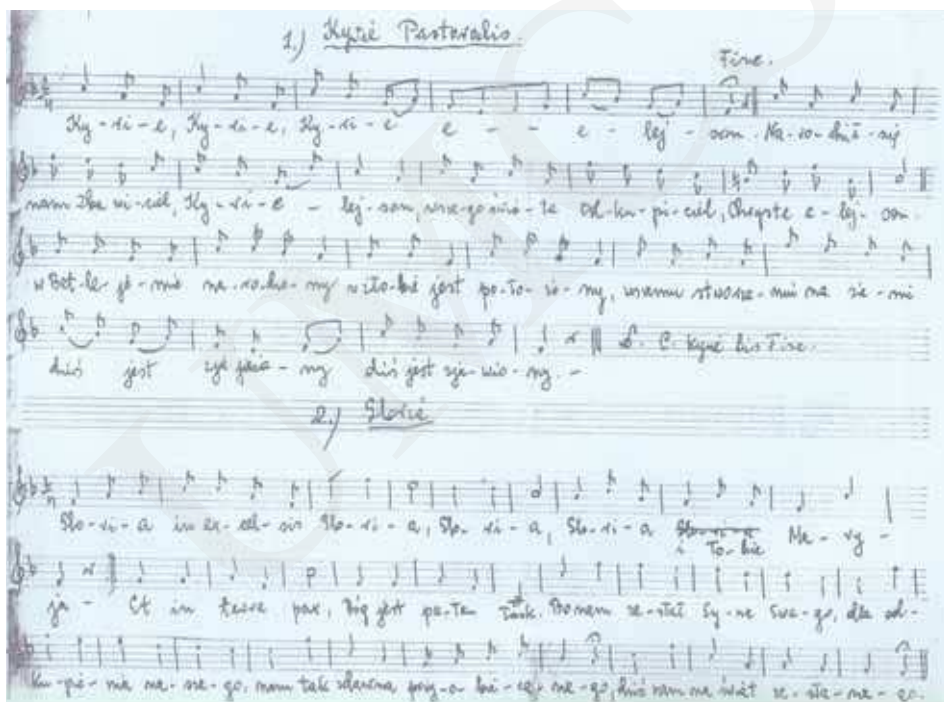 1.) Kyrie Pastoralis.
Fine.
Ky-ri-e, Ky-ri-e, Ky-ri-e e - - e - lej - son. Na-ro-dził-się
nam Zba wi-ciel, Ky-ri-e - lej-son, wszego świa-ta Od-ku-pi-ciel, Chryste e-lej-son.
w Bet-le-je-mie na-ro-dzo-ny w żło-bie jest po-ło-żo-ny, wszemu stworze-niu na zie-mi
dziś jest zja-wio-ny dziś jest zja-wio-ny. -
D. C. Kyrie bis Fine.
2.) Gloria
Glo-ri-a in ex-cel-sis Glo-ri-a, Glo-ri-a, Glo-ri-a i To-bie Ma-ry-
ja - Et in terra pax, Bóg jest pa-ten łask. Bo nam ze-słał Sy-na Swe-go, dla od-
ku-pie-nia na-sze-go, nam tak zdawna na świat ze-sła-ne-go.